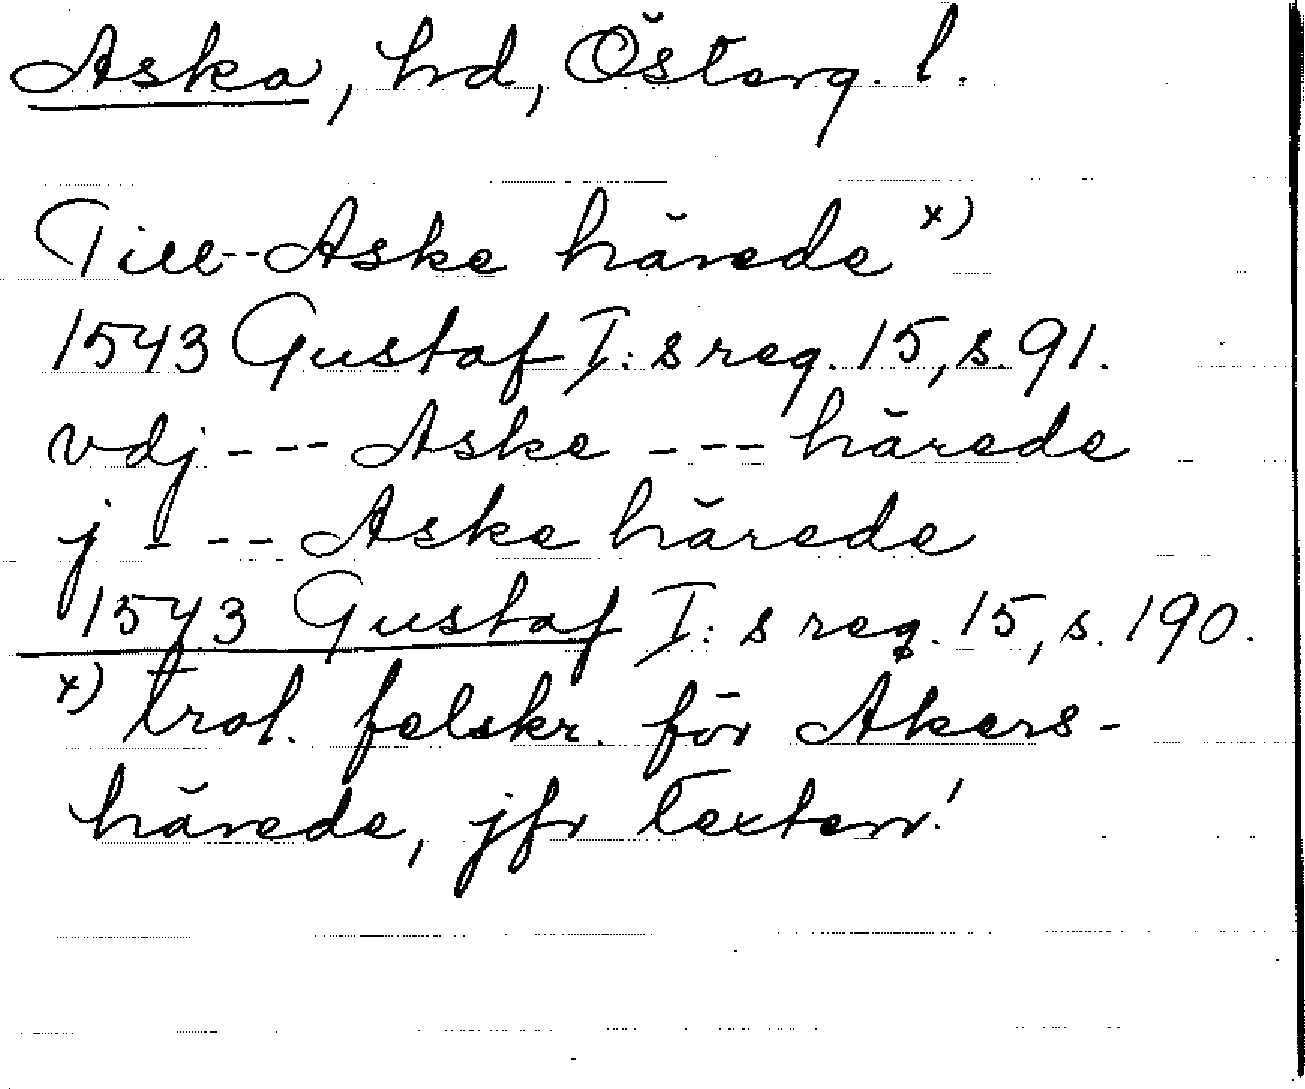 Aska, hd, Österg. l.
Till--Aske härede x)
1543 Gustaf I:s reg. 15, s. 91.
vdj --- Aske --- härede
j --- Aske härede
1543 Gustaf I:s reg. 15, s. 190.
x) trol. felskr. för Akers-
härede, jfr texten!